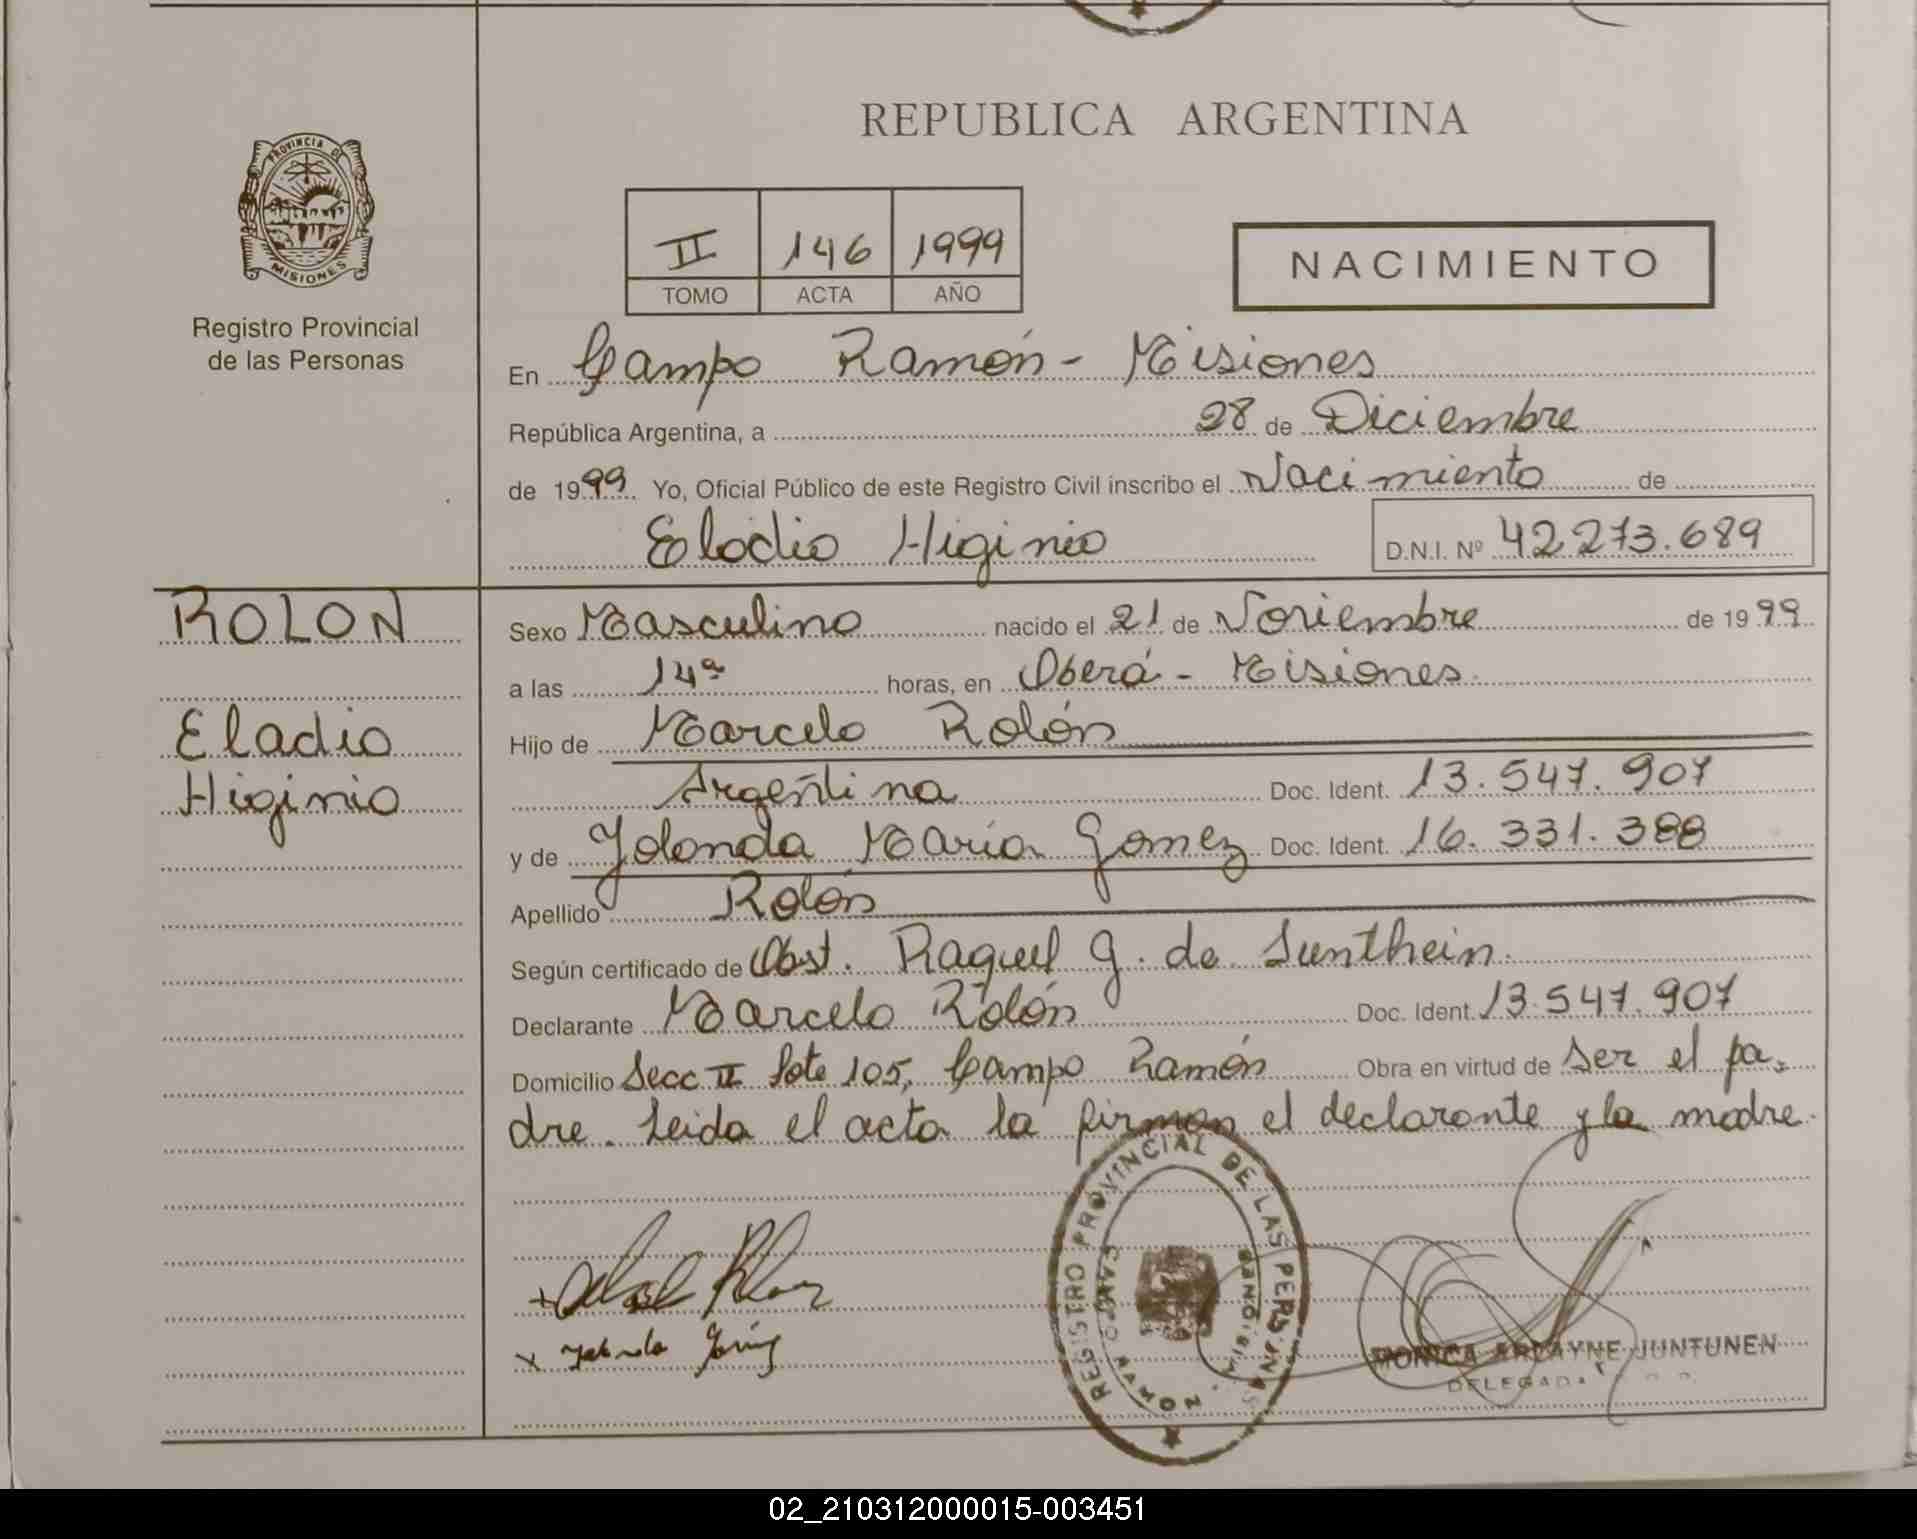 REPUBLICA ARGENTINA
PROVINCIA DE
MISIONES
Registro Provincial
de las Personas
II 146 1999
TOMO ACTA AÑO
NACIMIENTO
En Campo Ramón - Misiones
República Argentina, a 28 de Diciembre
de 1999 Yo, Oficial Público de este Registro Civil inscribo el Nacimiento de
Eladio Higinio D.N.I. Nº 42.273.689
ROLON
Eladio
Higinio
Sexo Masculino nacido el 21 de Noviembre de 1999
a las 14ª horas, en Oberá - Misiones.
Hijo de Marcelo Rolón
Argentina Doc. Ident. 13.547.907
y de Yolanda María Gomez Doc. Ident. 16.331.388
Apellido Rolón
Según certificado de Obst. Raquel G. de Sunthein.
Declarante Marcelo Rolón Doc. Ident. 13.547.907
Domicilio Secc II Lote 105, Campo Ramón Obra en virtud de ser el pa-
dre. Leida el acta la firman el declarante y la madre.
REGISTRO PROVINCIAL DE LAS PERSONAS
CAMPO RAMON
MISIONES
MONICA ARLAYNE JUNTUNEN
DELEGADA
02_210312000015-003451